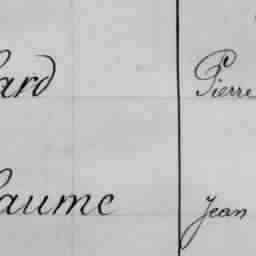 ard Pierre
aume Jean